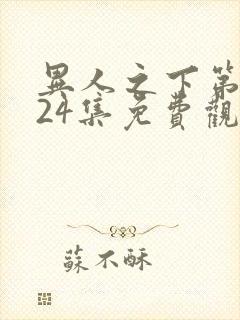 異人之下第
24集免費觀
蘇不酥